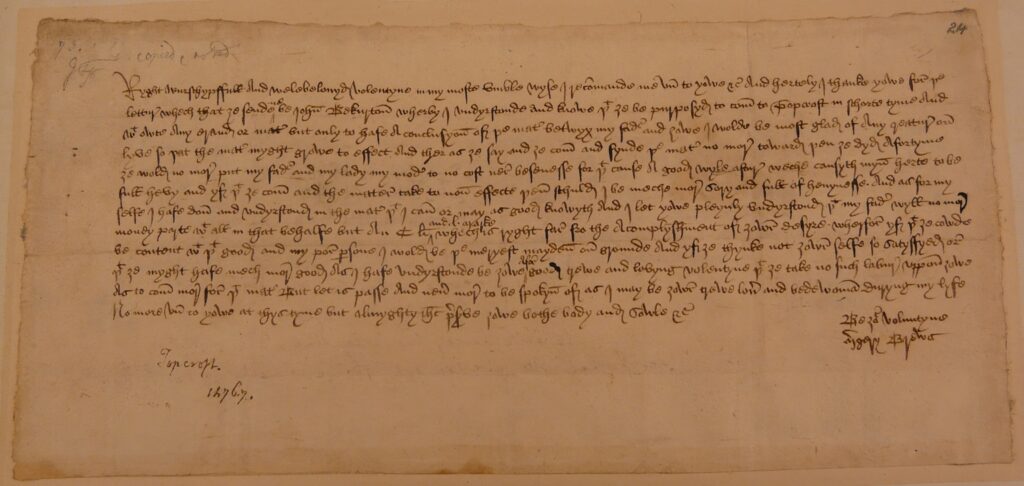 24
copied
Ryght wurschypffull And welebelouyd Volentyne in my moste vmble wyse I recomande me vn to yowe &c And hertely I thanke yowe for þe
lettur whech that ye sende me be John Bekurton wherby I vndyrstonde and knowe þt ye be purposyd to com to Topcroft in schorte tyme And
wt owte Any erand or mater but only to hafe A conclusyon of þe mater betwyx my fader and yowe I wolde be most glad of Any creatur on
lyve so þat the mater myght growe to effect And ther as ye say and ye com and fynde þe mater no mor toward þen ye dyd Afortyme
ye wold no mor put my fader and my lady my moder to no cost ner besenesse for þt cause A good wyle aftur weche causyth myn herte to be
full hevy and yf þt ye com and the mater take to non effecte þen schuld I be meche mor sory and full of hevynesse And as for my
selfe I hafe don and vndyrstond in the mater þt I can or may as good knowyth And I let yowe pleynly vndyrstond þt my fader wyll no mor
money parte wt all in that behalfe but An C li and l marke whech is ryght far fro the Acomplyshment of yowr desyre wherfor yf þt ye cowde
be content wt þt good and my por persone I wold be þe meryest mayden on grounde And yf ye thynke not yowr selfe so satysfyed or
þt ye myght hafe mech mor good As I hafe vndyrstonde be yowe afor good trewe and lovyng volentyne þt ye take no such labur vppon yowe
As to com mor for þt mater But let is passe And never mor to be spokyn of as I may be yowr trewe lover and bedewoman duryng my lyfe
No more vn to yowe at thys tyme but Almyghty Jhc preserve yowe bothe body and sowle &c
Be yowr Voluntyne
Mergery Brews
Topcroft.
1476.7.